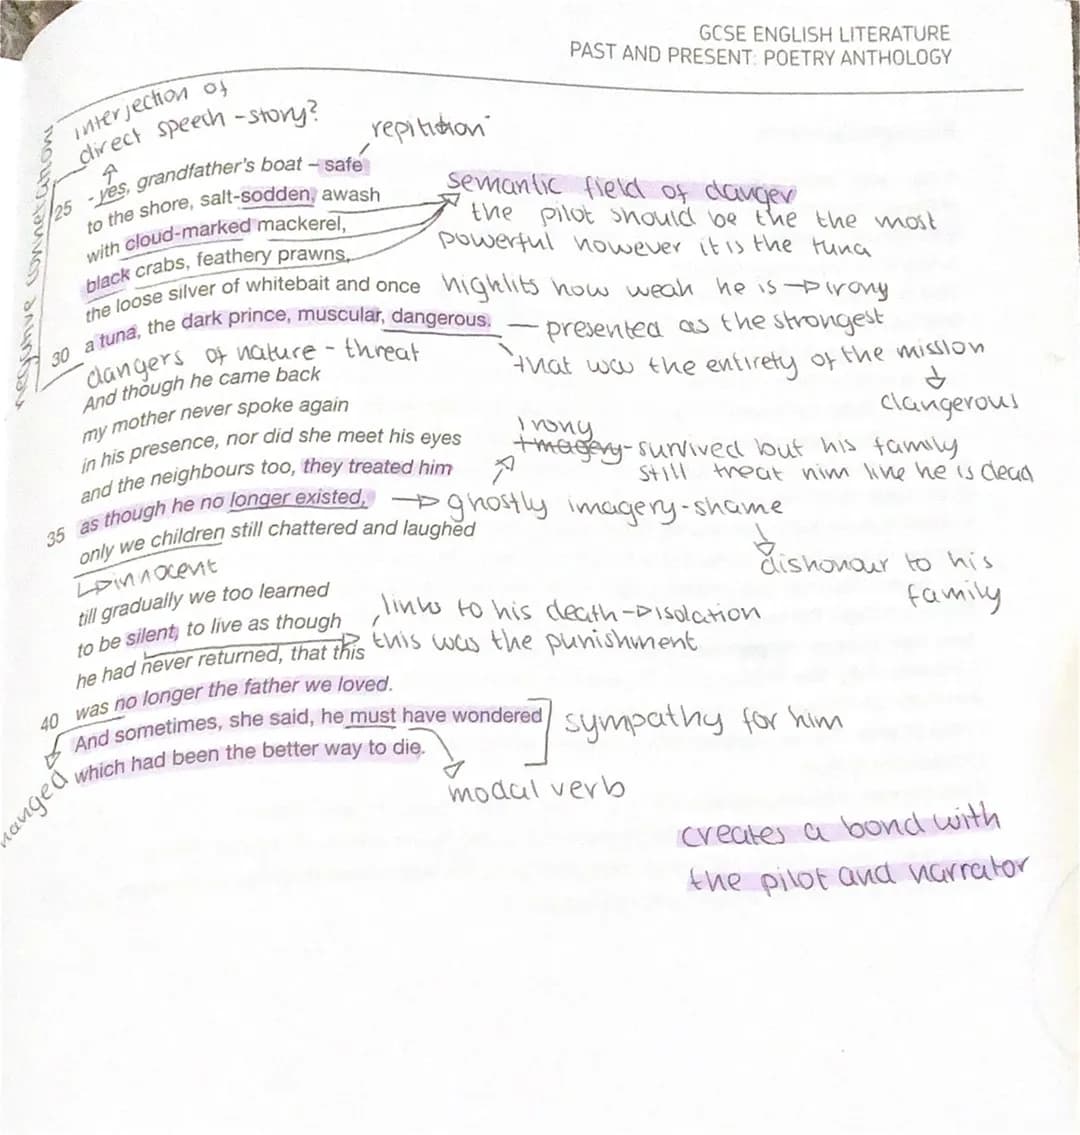 GCSE ENGLISH LITERATURE
PAST AND PRESENT: POETRY ANTHOLOGY
interjection of
direct speech - story?
repitition
25 - yes, grandfather's boat – safe
to the shore, salt-sodden, awash
with cloud-marked mackerel,
black crabs, feathery prawns,
the loose silver of whitebait and once
30 a tuna, the dark prince, muscular, dangerous.
semantic field of danger
the pilot should be the the most
powerful however it is the tuna
highlits how weak he is → irony
— presented as the strongest
that was the entirety of the mission
dangerous
dangers of nature - threat
And though he came back
my mother never spoke again
in his presence, nor did she meet his eyes
and the neighbours too, they treated him
35 as though he no longer existed,
only we children still chattered and laughed
Irony
Imagery - survived but his family
still treat him like he is dead
→ ghostly imagery - shame
dishonour to his
family
innocent
till gradually we too learned
to be silent, to live as though
he had never returned, that this
40 was no longer the father we loved.
And sometimes, she said, he must have wondered
which had been the better way to die.
links to his death → isolation
this was the punishment
sympathy for him
modal verb
creates a bond with
the pilot and narrator
negative connetations